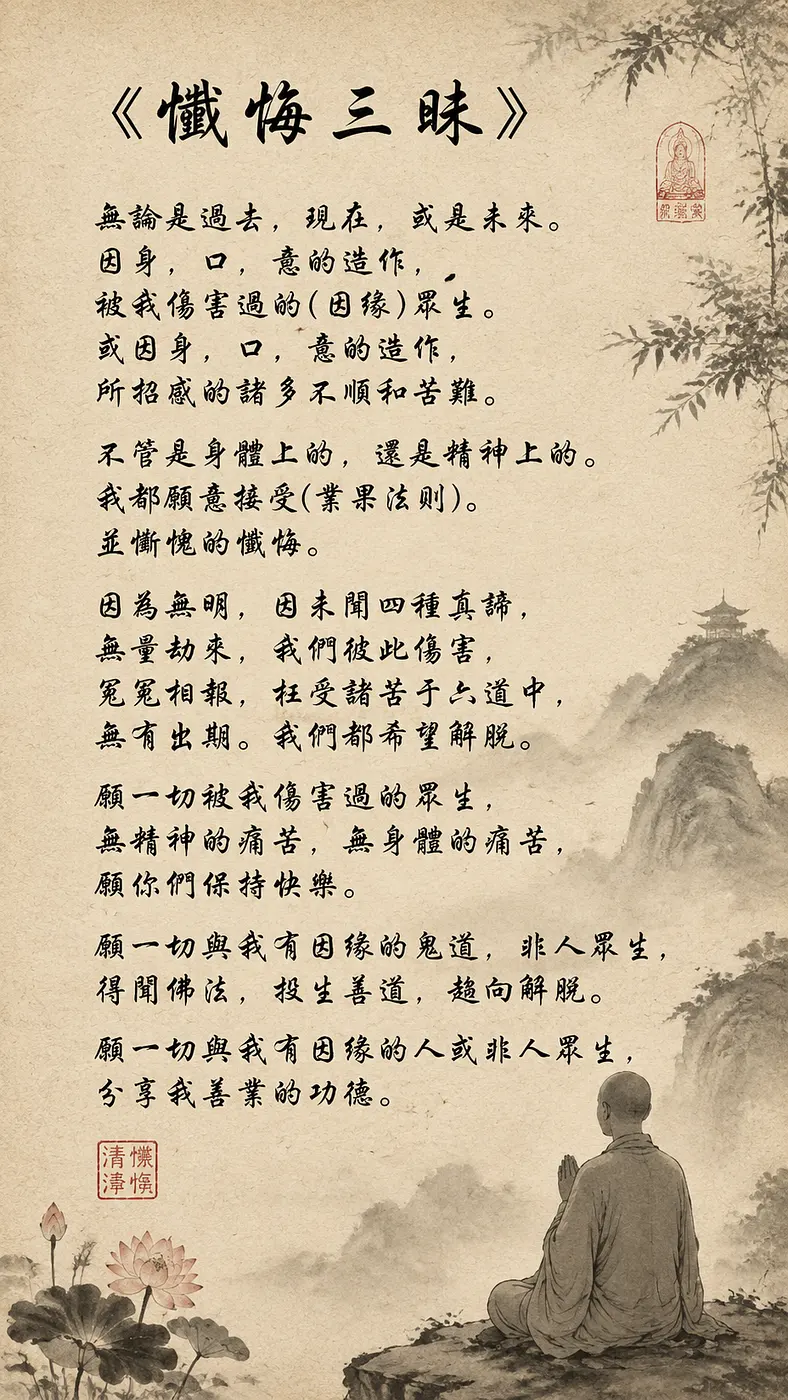 《懺悔三昧》
無論是過去，現在，或是未來。
因身，口，意的造作，
被我傷害過的(因缘)眾生。
或因身，口，意的造作，
所招感的諸多不順和苦難。
不管是身體上的，還是精神上的。
我都願意接受(業果法则)。
並慚愧的懺悔。
因為無明，因未聞四種真諦，
無量劫來，我們彼此傷害，
冤冤相報，枉受諸苦于六道中，
無有出期。我們都希望解脫。
願一切被我傷害過的眾生，
無精神的痛苦，無身體的痛苦，
願你們保持快樂。
願一切與我有因缘的鬼道，非人眾生，
得聞佛法，投生善道，趨向解脫。
願一切與我有因缘的人或非人眾生，
分享我善業的功德。